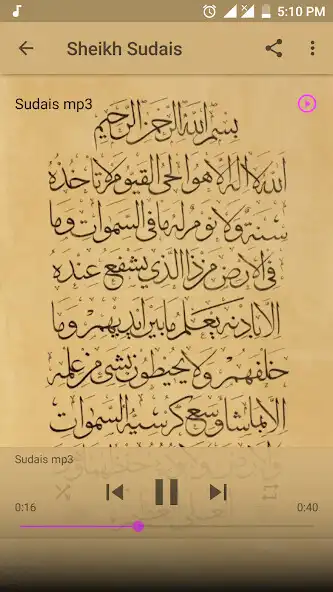 5:10 PM
Sheikh Sudais
Sudais mp3
بسم الله الرحمن الرحيم
الله لا اله الا هو الحي القيوم لا تاخذه
سنة ولا نوم له ما في السموات وما
في الارض من ذا الذي يشفع عنده
الا باذنه يعلم ما بين ايديهم وما
خلفهم ولا يحيطون بشيء من علمه
الا بما شا وسع كرسيه السموات
Sudais mp3
0:16
0:40